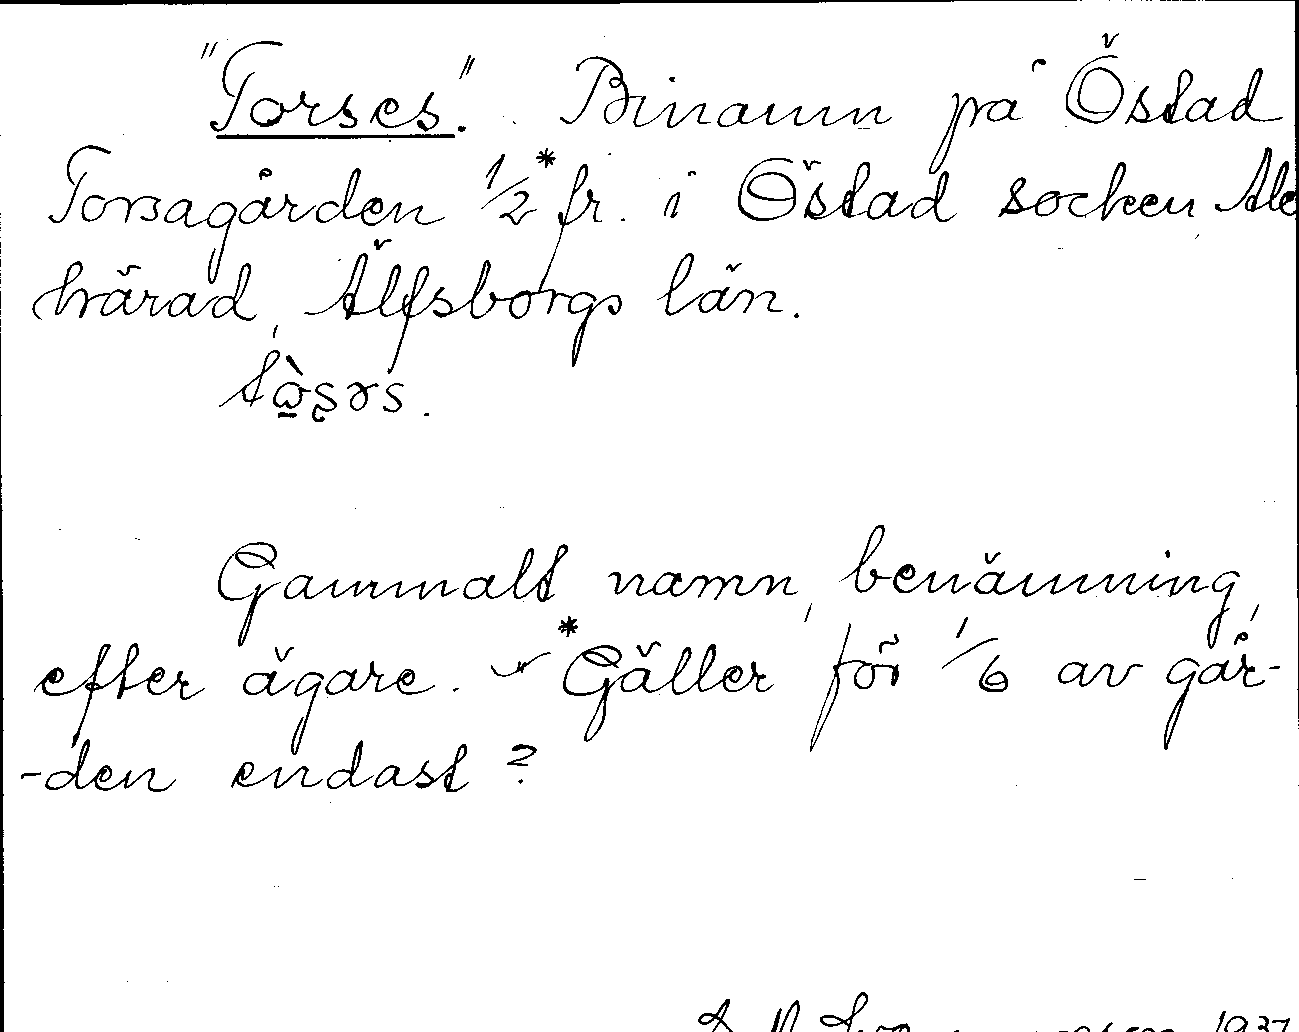 "Torses". Binamn på Östad
Torsagården 1/2* fr. i Östad socken Ale
härad, Älfsborgs län.
tὼ̱ʂɤs.
Gammalt namn, benämning,
efter ägare. *Gäller för 1/6 av går-
-den endast?
1937